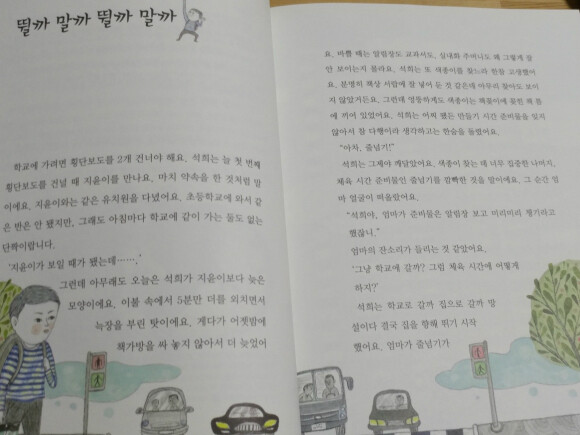 뛸까 말까 뛸까 말까
학교에 가려면 횡단보도를 2개 건너야 해요. 석희는 늘 첫 번째
횡단보도를 건널 때 지윤이를 만나요. 마치 약속을 한 것처럼 말
이에요. 지윤이와는 같은 유치원을 다녔어요. 초등학교에 와서 같
은 반은 안 됐지만, 그래도 아침마다 학교에 같이 가는 둘도 없는
단짝이랍니다.
'지윤이가 보일 때가 됐는데…….'
그런데 아무래도 오늘은 석희가 지윤이보다 늦은
모양이에요. 이불 속에서 5분만 더를 외치면서
늑장을 부린 탓이에요. 게다가 어젯밤에
책가방을 싸 놓지 않아서 더 늦었어
요. 바쁠 때는 알림장도 교과서도, 실내화 주머니도 왜 그렇게 잘
안 보이는지 몰라요. 석희는 또 색종이를 찾느라 한참 고생했어
요. 분명히 책상 서랍에 잘 넣어 둔 것 같은데 아무리 찾아도 보이
지 않았거든요. 그런데 엉뚱하게도 색종이는 책꽂이에 꽂힌 책 틈
에 끼어 있었어요. 석희는 어찌 됐든 만들기 시간 준비물을 잊지
않아서 잘 다행이라 생각하고는 한숨을 돌렸어요.
"아차, 줄넘기!"
석희는 그제야 깨달았어요. 색종이 찾는 데 너무 집중한 나머지,
체육 시간 준비물인 줄넘기를 깜빡한 것을 말이에요. 그 순간 엄
마 얼굴이 떠올랐어요.
"석희야, 엄마가 준비물은 알림장 보고 미리미리 챙기라고
했잖니."
엄마의 잔소리가 들리는 것 같았어요.
'그냥 학교에 갈까? 그럼 체육 시간에 어떻게
하지?'
석희는 학교로 갈까 집으로 갈까 망
설이다 결국 집을 향해 뛰기 시작
했어요. 엄마가 줄넘기가